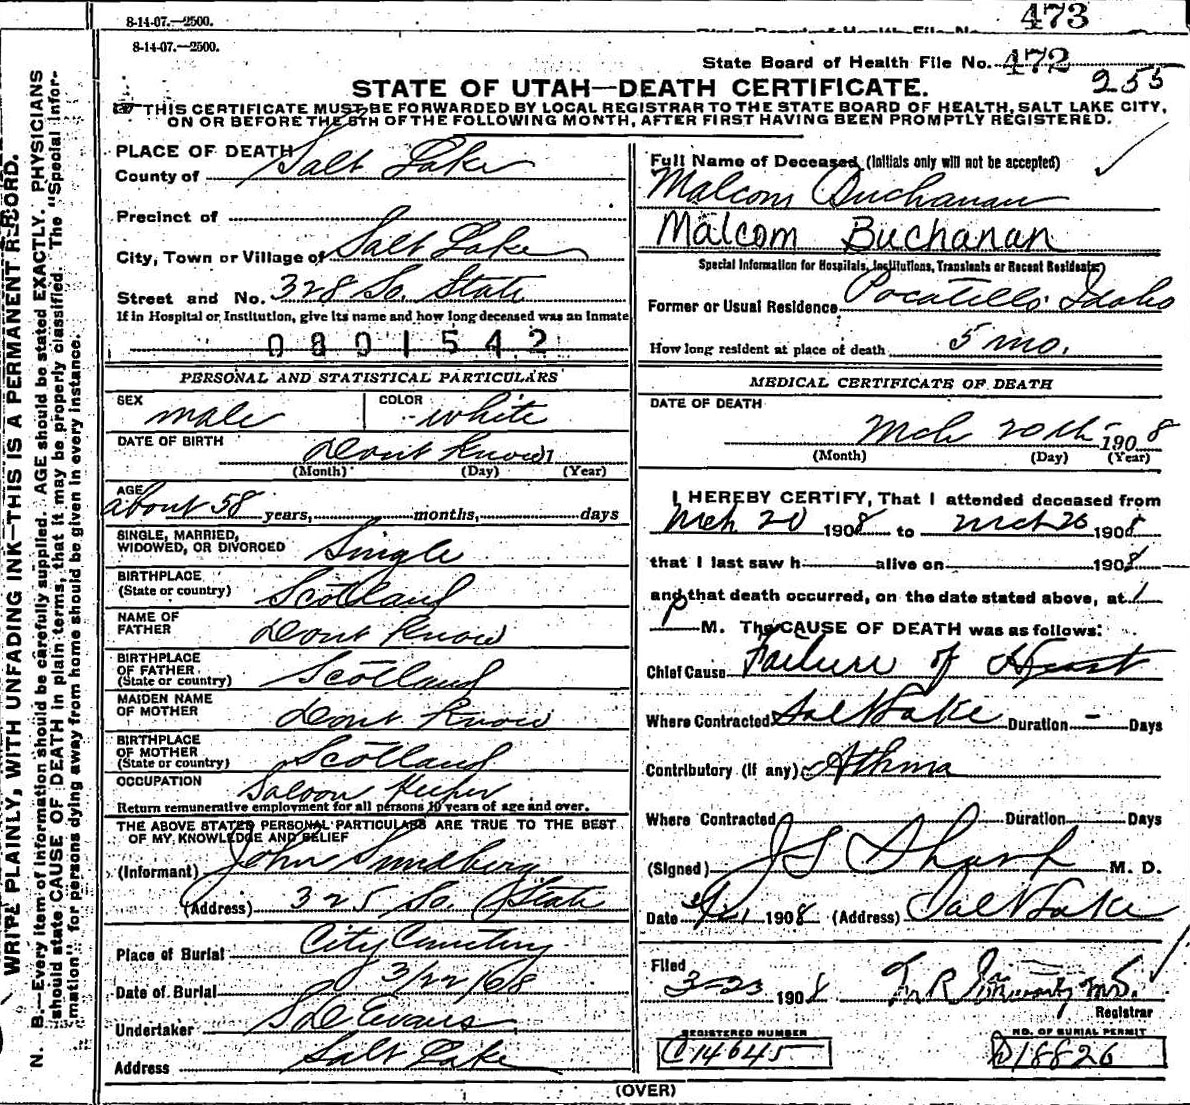 8-14-07.—2500.
473
8-14-07.—2500.
State Board of Health File No. 472
255
STATE OF UTAH—DEATH CERTIFICATE.
THIS CERTIFICATE MUST BE FORWARDED BY LOCAL REGISTRAR TO THE STATE BOARD OF HEALTH, SALT LAKE CITY,
ON OR BEFORE THE 5TH OF THE FOLLOWING MONTH, AFTER FIRST HAVING BEEN PROMPTLY REGISTERED.
WRITE PLAINLY, WITH UNFADING INK—THIS IS A PERMANENT RECORD.
N. B.—Every item of information should be carefully supplied. AGE should be stated EXACTLY. PHYSICIANS
should state CAUSE OF DEATH in plain terms, that it may be properly classified. The "Special Infor-
mation" for persons dying away from home should be given in every instance.
PLACE OF DEATH
County of Salt Lake
Precinct of
City, Town or Village of Salt Lake
Street and No. 328 So. State
If in Hospital or Institution, give its name and how long deceased was an inmate
0801542
PERSONAL AND STATISTICAL PARTICULARS
SEX male COLOR white
DATE OF BIRTH Dont Know
(Month) (Day) (Year)
AGE about 58 years, months, days
SINGLE, MARRIED,
WIDOWED, OR DIVORCED Single
BIRTHPLACE
(State or country) Scotland
NAME OF
FATHER Dont Know
BIRTHPLACE
OF FATHER
(State or country) Scotland
MAIDEN NAME
OF MOTHER Dont Know
BIRTHPLACE
OF MOTHER
(State or country) Scotland
OCCUPATION Saloon Keeper
Return remunerative employment for all persons 10 years of age and over.
THE ABOVE STATED PERSONAL PARTICULARS ARE TRUE TO THE BEST
OF MY KNOWLEDGE AND BELIEF
(Informant) John Sundberg
(Address) 325 So. State
Place of Burial City Cemetery
Date of Burial 3/22/08
Undertaker Evans
Address Salt Lake
Full Name of Deceased, (Initials only will not be accepted)
Malcom Buchanan
Malcom Buchanan
Special Information for Hospitals, Institutions, Transients or Recent Residents:
Former or Usual Residence Pocatello Idaho
How long resident at place of death 5 mo.
MEDICAL CERTIFICATE OF DEATH
DATE OF DEATH
Mch 20th 1908
(Month) (Day) (Year)
I HEREBY CERTIFY, That I attended deceased from
Mch 20 1908 to Mch 20 1908
that I last saw h alive on 1908
and that death occurred, on the date stated above, at 1
P M. The CAUSE OF DEATH was as follows:
Chief Cause Failure of Heart
Where Contracted Salt Lake Duration - Days
Contributory (if any) Athma
Where Contracted Duration Days
(Signed) J S Sharp M. D.
Date 3/21 1908 (Address) Salt Lake
Filed
3-23 1908 M.D.
Registrar
REGISTERED NUMBER
C14645
NO. OF BURIAL PERMIT
D18826
(OVER)